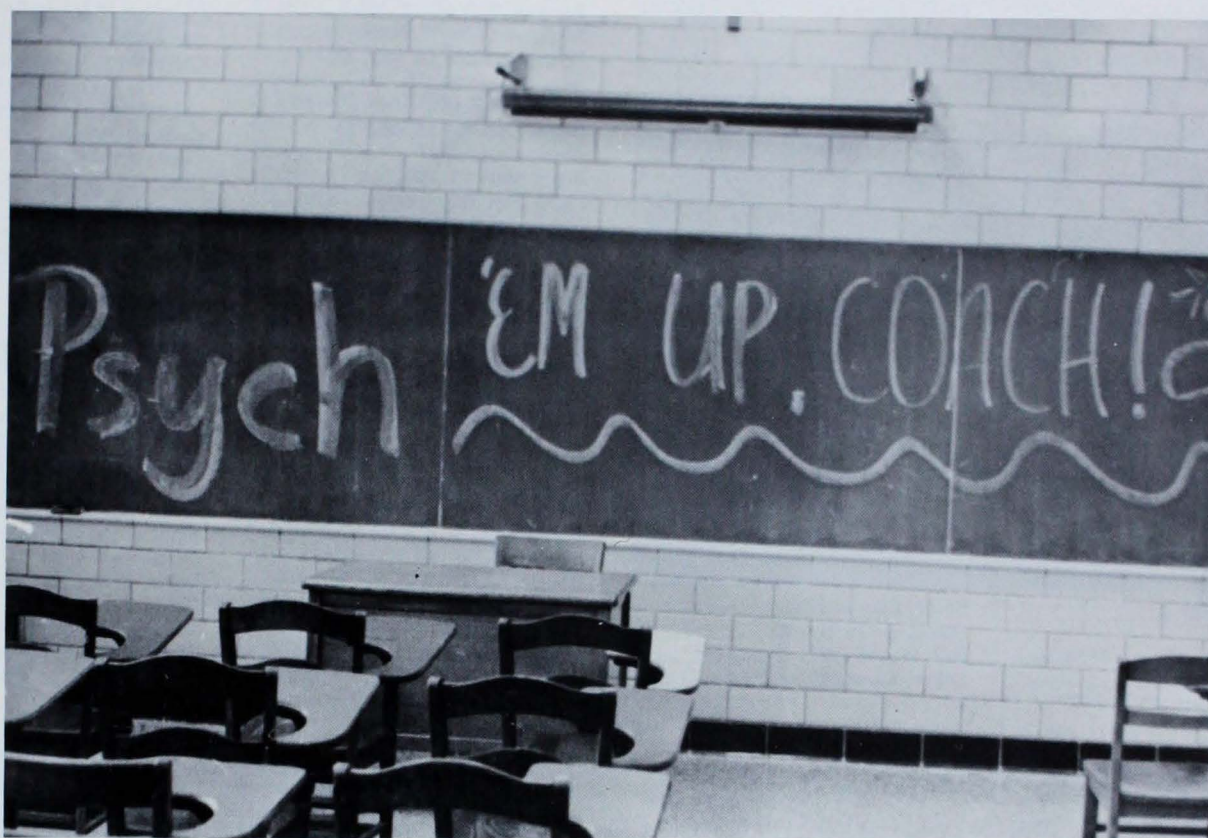 Psych 'EM UP. COACH!